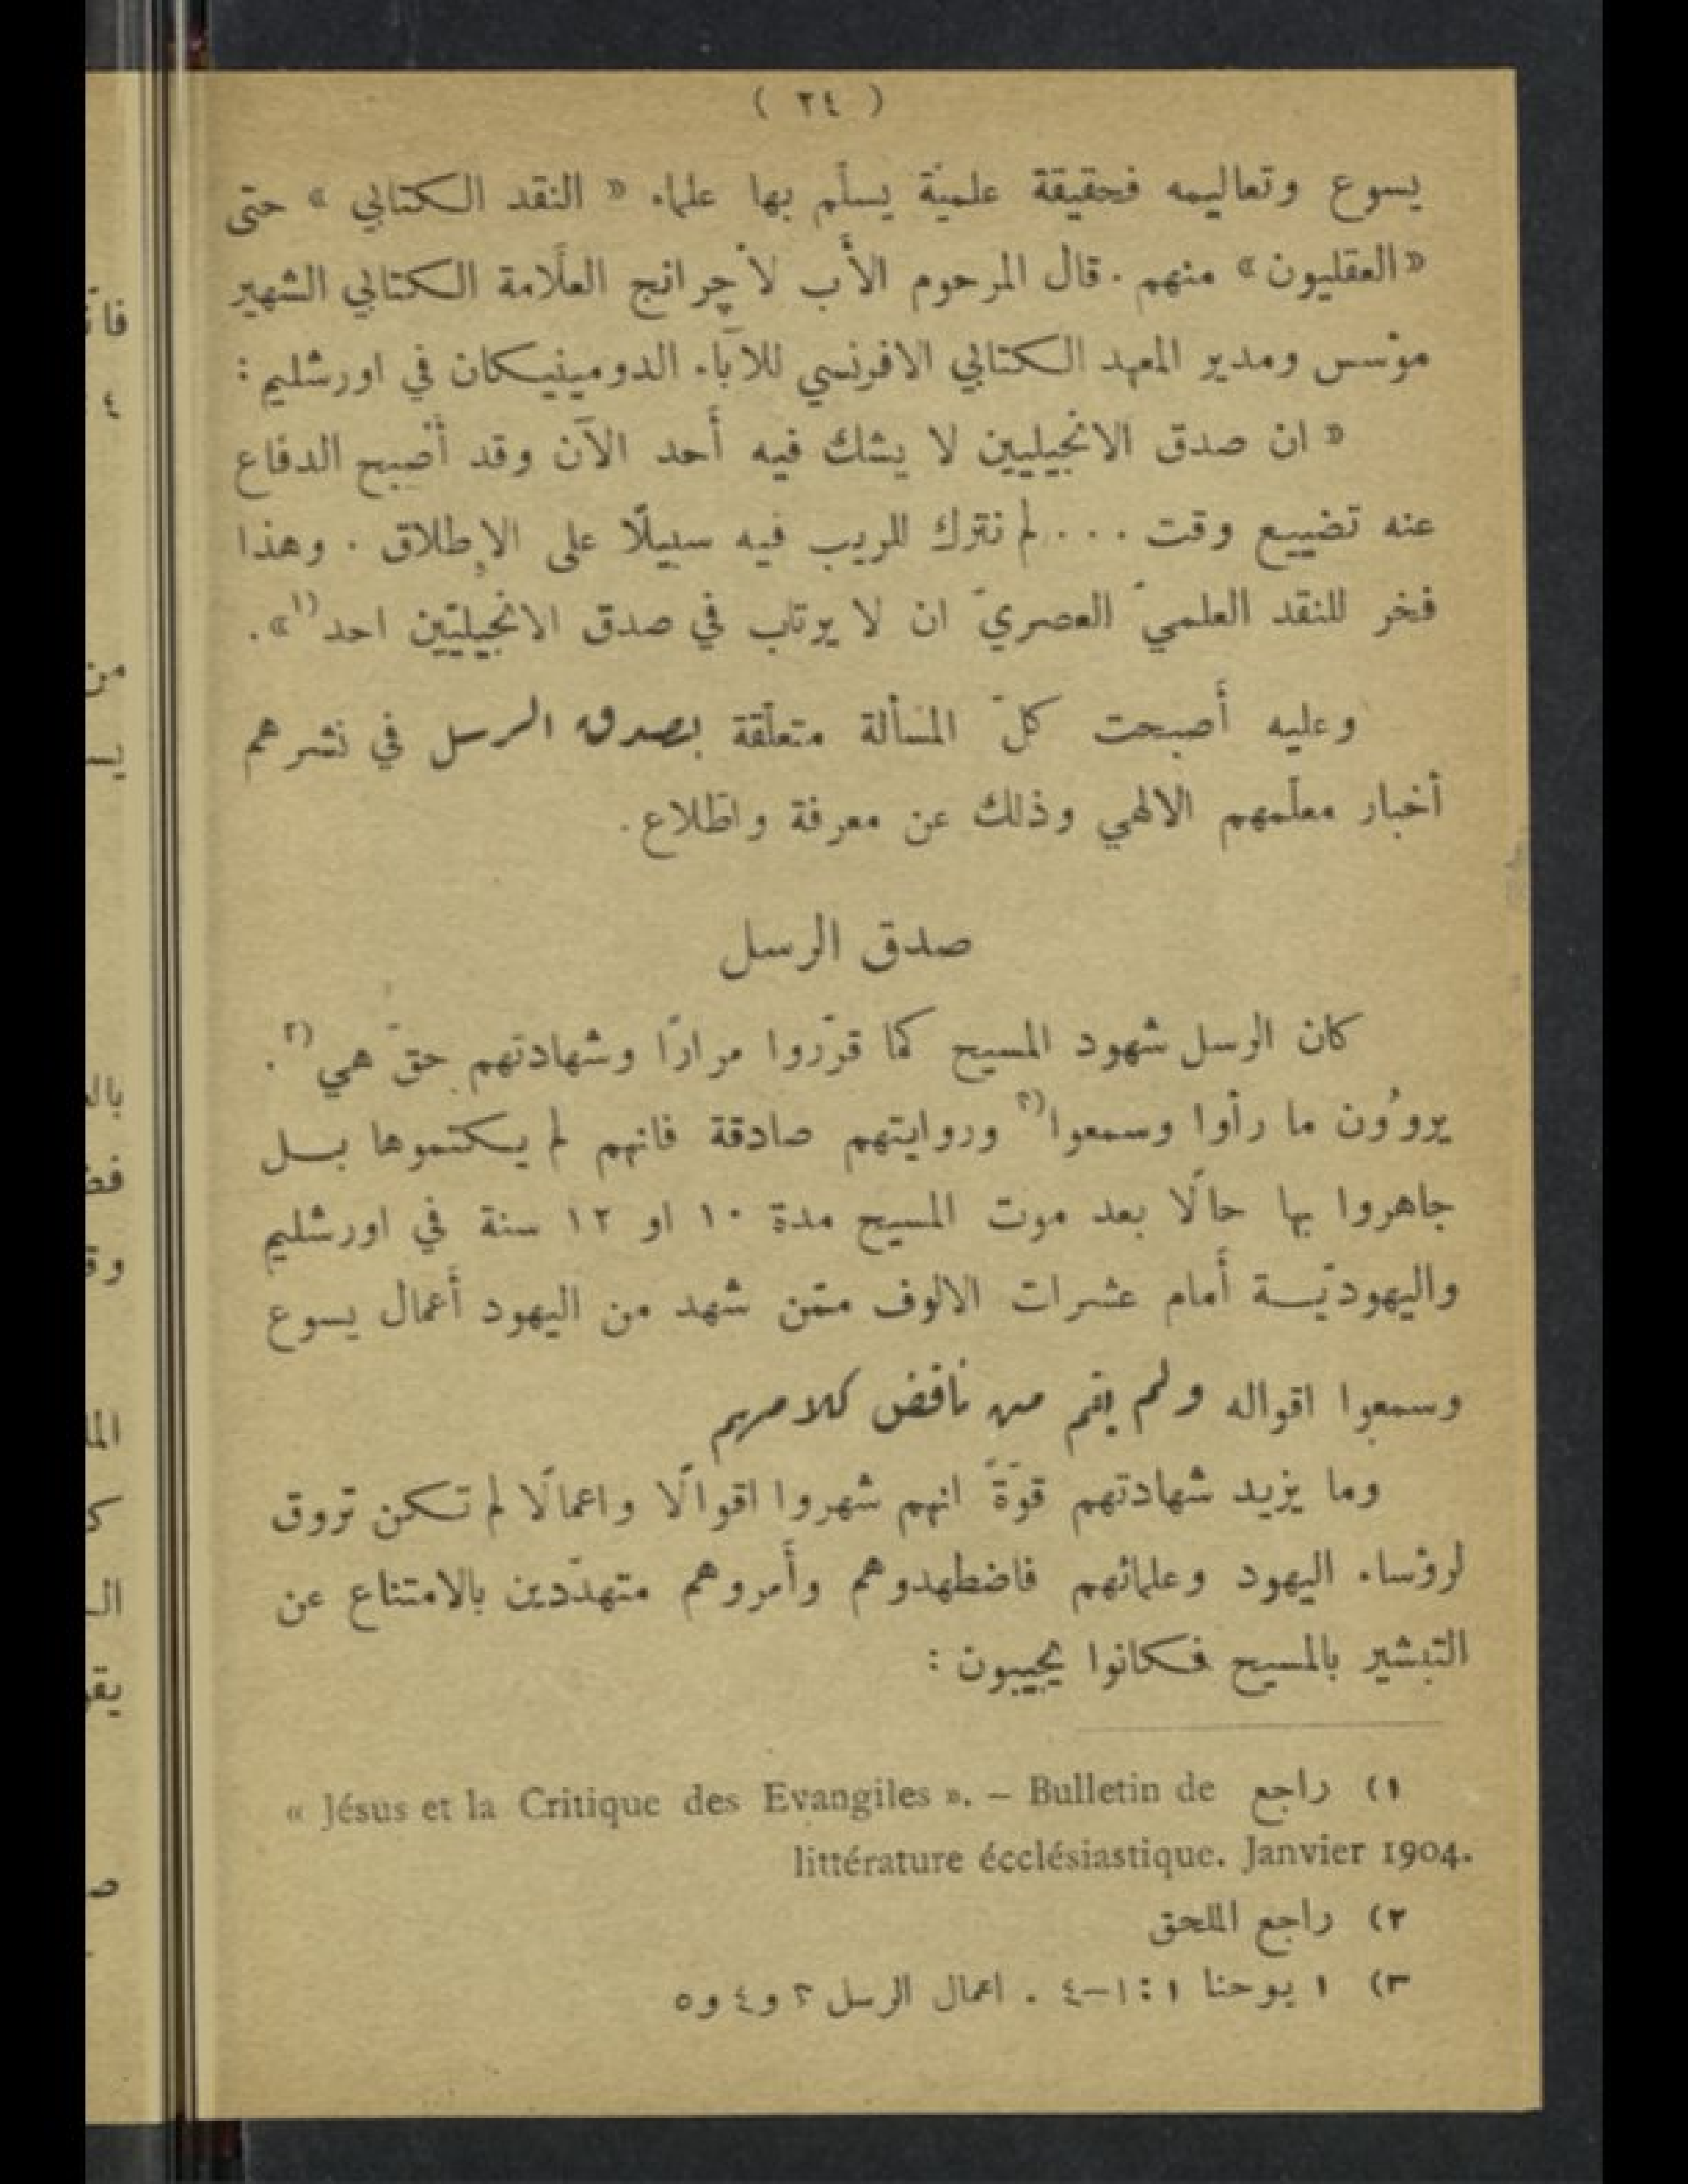 ( ٢٤ )
يسوع وتعاليمه فحقيقة علميَّة يسلّم بها علماء « النقد الكتابي » حتى
« العقليون » منهم . قال المرحوم الأَب لاَجرانج العلَّامة الكتابي الشهير
مؤسس ومدير المعهد الكتابي الافرنسي للآباء الدومينيكان في اورشليم :
« ان صدق الانجيليين لا يشك فيه أَحد الآن وقد أَصبح الدفاع
عنه تضييع وقت . . . لم نترك للريب فيه سبيلًا على الإِطلاق . وهذا
فخر للنقد العلميّ العصريّ ان لا يرتاب في صدق الانجيليّين احد (١ » .
وعليه أَصبحت كلّ المسألة متعلّقة بصدق الرسل في نشرهم
أخبار معلّمهم الالهي وذلك عن معرفة واطّلاع .
صدق الرسل
كان الرسل شهود المسيح كما قرّروا مرارًا وشهادتهم حقّ هي (٢ .
يروُون ما رأوا وسمعوا (٣ وروايتهم صادقة فانهم لم يكتموها بل
جاهروا بها حالًا بعد موت المسيح مدة ١٠ او ١٢ سنة في اورشليم
واليهوديّة أَمام عشرات الالوف ممّن شهد من اليهود أَعمال يسوع
وسمعوا اقواله ولم يقم من ناقض كلامهم
وما يزيد شهادتهم قوَّةً انهم شهروا اقوالًا واعمالًا لم تكن تروق
لرؤساء اليهود وعلمائهم فاضطهدوهم وأَمروهم متهدّدين بالامتناع عن
التبشير بالمسيح فكانوا يجيبون :
١) راجع « Jésus et la Critique des Evangiles ». – Bulletin de
littérature écclésiastique. Janvier 1904.
٢) راجع الملحق
٣) ١ يوحنا ١ : ١–٤ . اعمال الرسل ٢ و٤ و٥